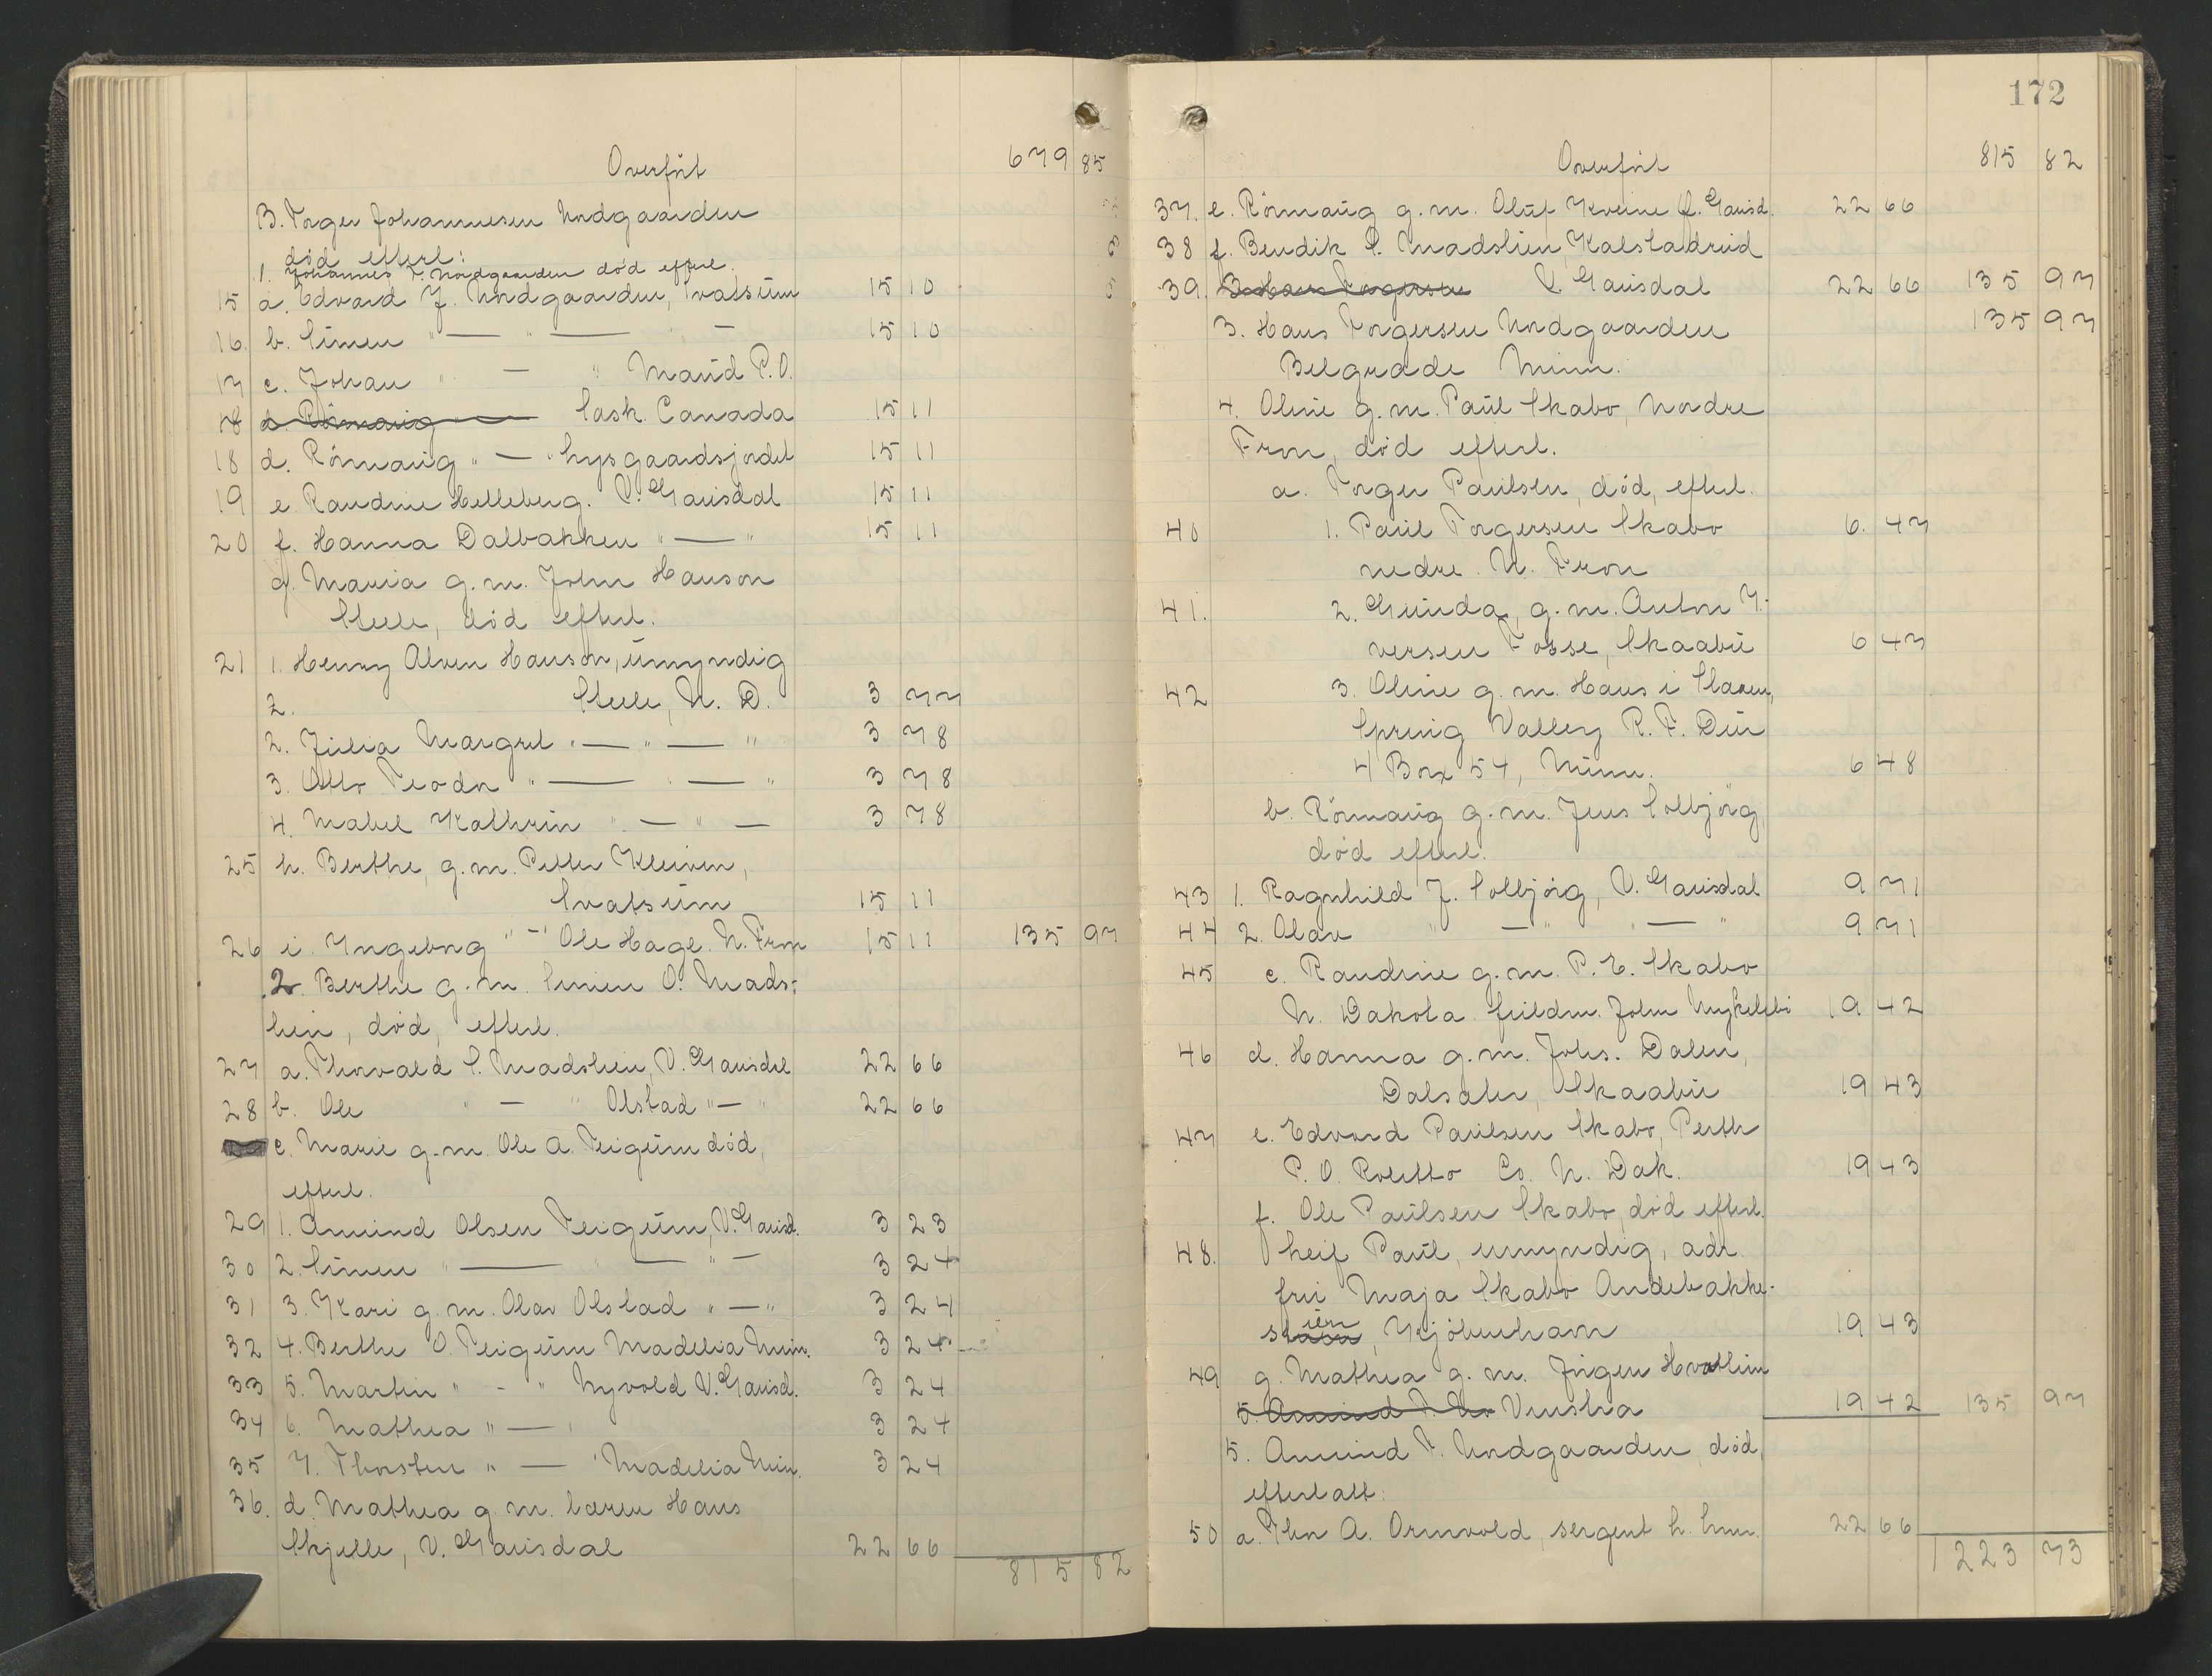 Overført 679 85
B. Torger Johannesen Nordgaarden
død efterl:
1. Johannes T. Nordgaarden død efterl.
15 a. Edvard J. Nordgaarden, Svatsum 15 10
16. b. Simen " — " — — 15 10
17 c. Johan " — " Maud P.O.
18 d. Rönnaug — Sask. Canada 15 11
18 d. Rönnaug " — " Lysgaardsjordet 15 11
19 e Randine Helleberg. V. Gausdal 15 11
20 f. Hanna Dalbakken " — " 15 11
g. Maria g.m. John Hanson
Steele, död efterl.
21 1. Henry Alven Hanson, umyndig
2. Steele, N. D. 3 77
2. Julia Margret " — " — " 3 78
3. Otto Teodor " — " — " 3 78
4. Mabel Kathrin " — " — 3 78
25 h. Berthe, g.m. Petter Kleiven,
Svatsum 15 11
26 i. Ingeborg " — " Ole Hage. N. Fron 15 11 135 97
2. Berthe g.m. Simen O. Mads-
lien, död, efterl.
27 a. Thorvald S. Madslien, V. Gausdal 22 66
28 b. Ole " — " Olstad " — " 22 66
c. Marie g.m. Ole A. Teigum död,
efterl.
29 1. Amund Olsen Teigum, V. Gausd. 3 23
30 2. Simen " — " — " — 3 24
31 3. Kari g.m. Olav Olstad " — " 3 24
32 4. Berthe O. Teigum Madelia Minn. 3 24
33 5. Martin " - " Nyvold V. Gausd. 3 24
34 6. Mathea " — " 3 24
35 7. Thorsten " — " Madelia Min. 3 24
36. d. Mathea g.m. lærer Hans
Skjelle, V. Gausdal 22 66
815 82
172
Overført 815 82
37. e. Rönnaug g.m. Oluf Kveine Ö. Gausd. 22 66
38 f. Bendik S. Madslien, Kalstadreid
39. 3. Hans Torgersen V. Gausdal 22 66 135 97
3. Hans Torgersen Nordgaarden 135 97
Belgrade Minn.
4. Oline g.m. Paul Skabo, Nordre
Fron, död efterl.
a. Torger Paulsen, död, efterl.
40 1. Paul Torgersen Skabo 6. 47
nedre. N. Fron
41. 2. Gunda, g.m. Anton I-
versen Fosse, Skaabu 6 47
42 3. Oline g.m. Hans i Slaaen,
Spring Valley R. F. Dur
4 Box 54, Minn. 6 48
b. Rönnaug g.m. Jens Solbjörg,
död efterl.
43 1. Ragnhild J. Solbjörg, V. Gausdal 9 71
44 2. Olav " — " " — " 9 71
45 c. Randine g.m. P. E. Skabo
N. Dakota fuldm. John Nykelsbi 19 42
46 d. Hanna g.m. Johs. Dalen,
Dalsæter, Skaabu 19 43
47 e. Edvard Paulsen Skabo, Perth
P. O. Rolette Co. N. Dak. 19 43
f. Ole Paulsen Skabo, död efterl.
48. Leif Paul, umyndig, adr.
fru Maja Skabo Andebakke-
stien, Kjöbenhavn 19 43
49 g. Mathea g.m. Jörgen Hvattum
5. Amund T. No Venstra 19 42 135 97
5. Amund T. Nordgaarden, död,
efterlatt:
50 a. Thor A. Ormvold, sergent h. hmr. 22 66
1223 73